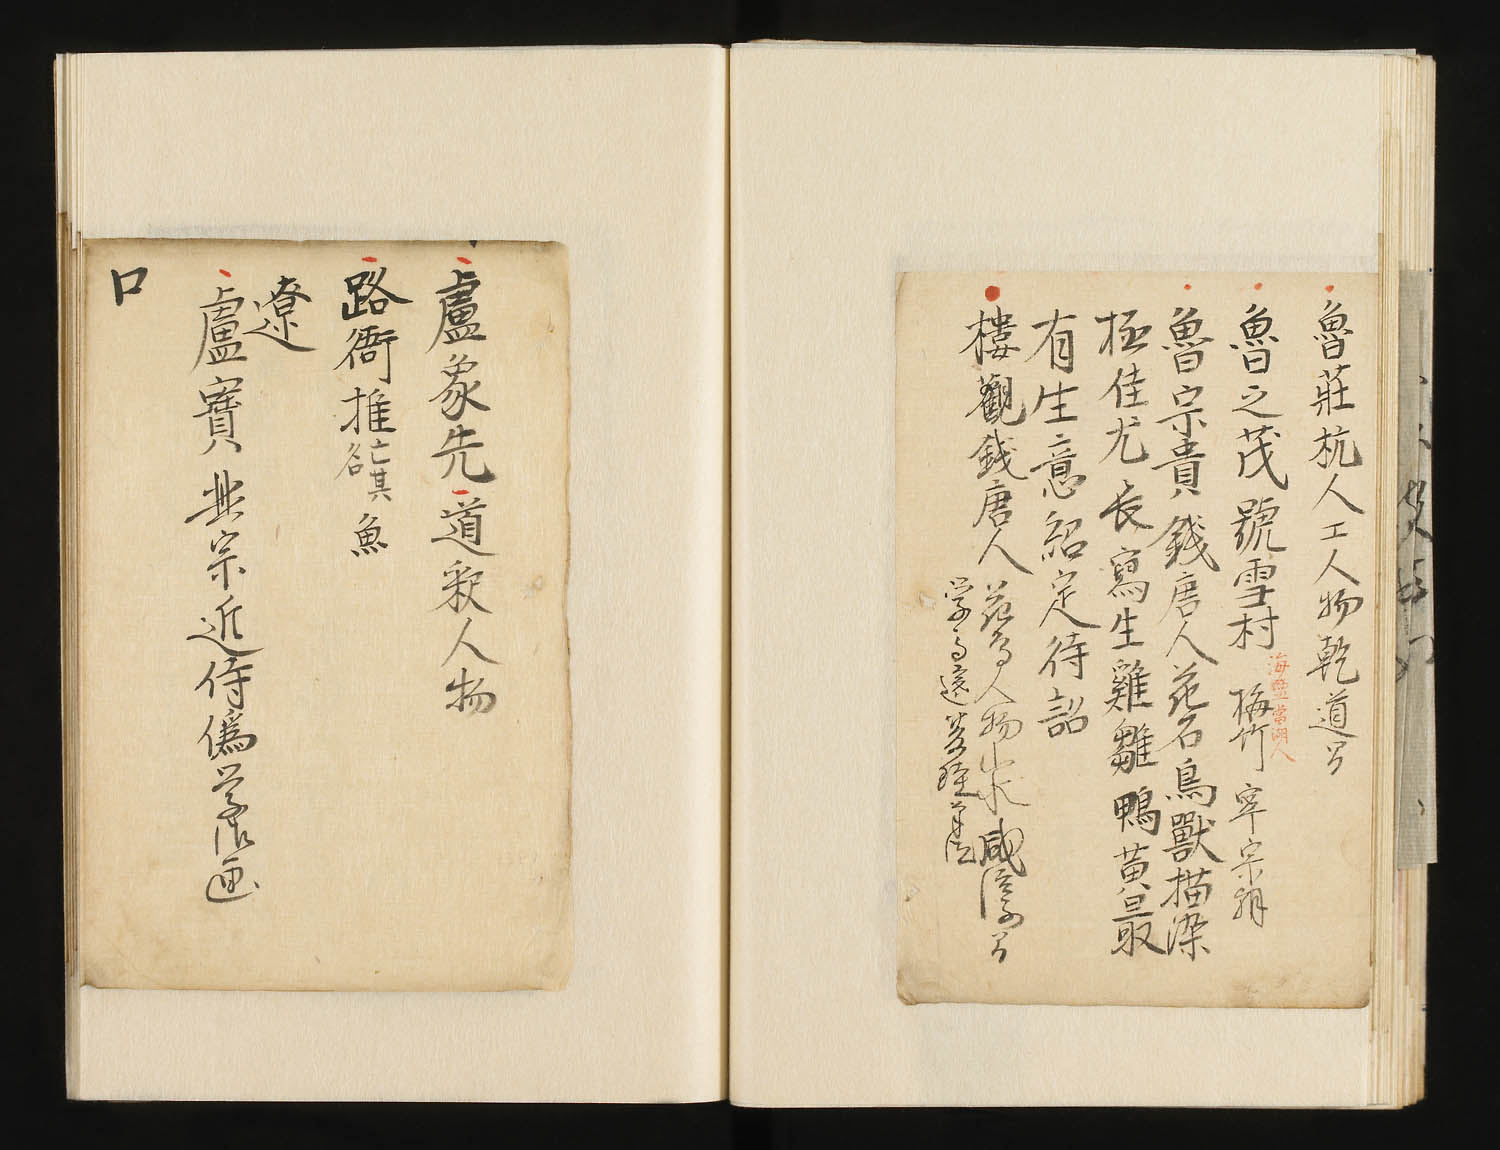 魯莊杭人工人物乾道
魯之茂號雪村梅竹寧宗朝
海鹽當湖人
魯宗貴錢唐人花石鳥獸描染
極佳尤長寫生雞雛鴨黃最
有生意紹定待詔
樓觀錢唐人花鳥人物山水咸淳
學馬遠
盧象先道釈人物
路衙推亡其名魚
遼
盧寶興宗近侍偽學作画
口